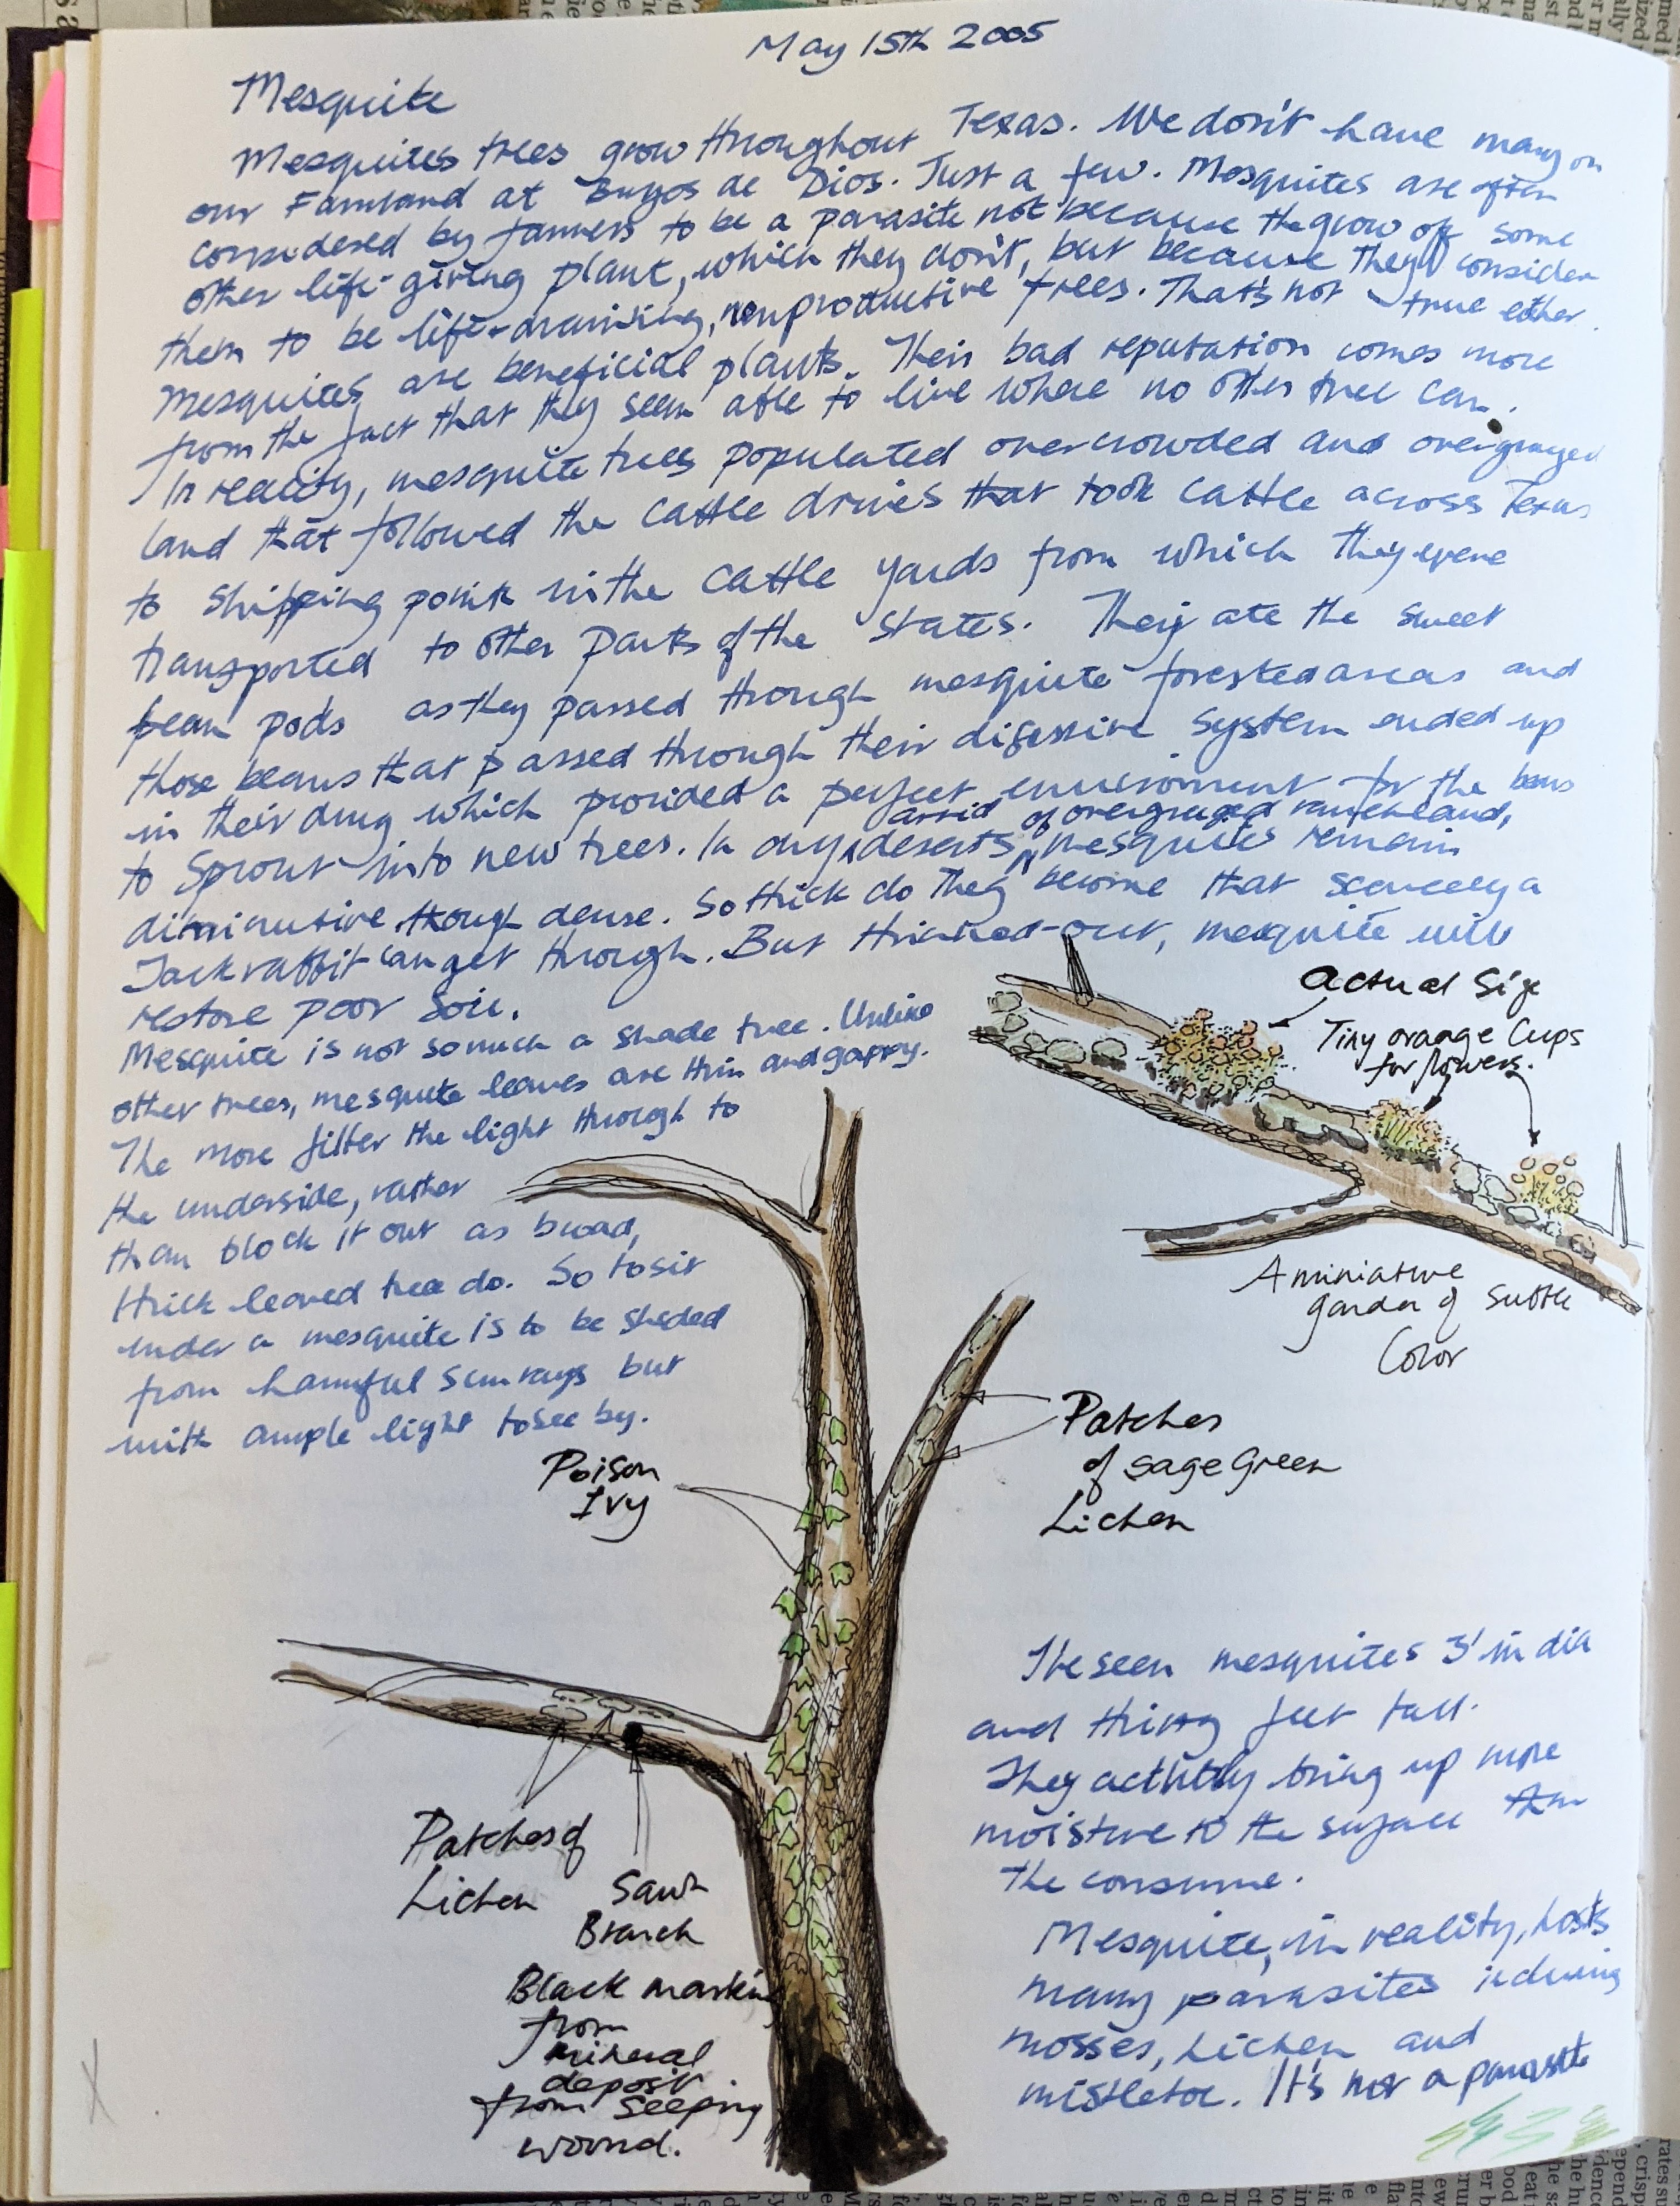 May 15th 2005
Mesquite
Mesquites trees grow throughout Texas. We don't have many on
our Farmland at Burgos de Dios. Just a few. Mesquites are often
considered by farmers to be a parasite not because the grow off some
other life-giving plant, which they don't, but because they consider
them to be life-draining, nonproductive trees. That's not true either.
Mesquites are beneficial plants. Their bad reputation comes more
from the fact that they seem able to live where no other tree can.
In reality, mesquite trees populated overcrowded and overgrazed
land that followed the cattle drives that took cattle across Texas
to shipping points in the cattle yards from which they were
transported to other parts of the states. They ate the sweet
bean pods as they passed through mesquite forested areas and
those beans that passed through their digestive system ended up
in their dung which provided a perfect enviroment for the beans
to sprout into new trees. In dry arrid deserts or overgrazed rancheland, mesquites remain
diminutive though dense. So thick do they become that scarcely a
Jackrabbit can get through. But thinned-out, mesquite will
restore poor soil.
Mesquite is not so much a shade tree. Unlike
other trees, mesquite leaves are thin and gappy.
The more filter the light through to
the underside, rather
than block it out as broad,
thick leaved tree do. So to sit
under a mesquite is to be shaded
from harmful sun rays but
with ample light to see by.
Actual Size
Tiny orange Cups
for flowers.
A miniature
garden of subtle
Color
Poison
Ivy
Patches
of sage Green
Lichen
Patches of
Lichen
Sawn
Branch
Black marking
from
mineral
deposit
from seeping
wound.
I've seen mesquites 3' in dia
and thirty feet tall.
They actually bring up more
moisture to the surface than
the consume.
Mesquite, in reality, hosts
many parasites including
mosses, Lichen and
mistletoe. It's not a parasite